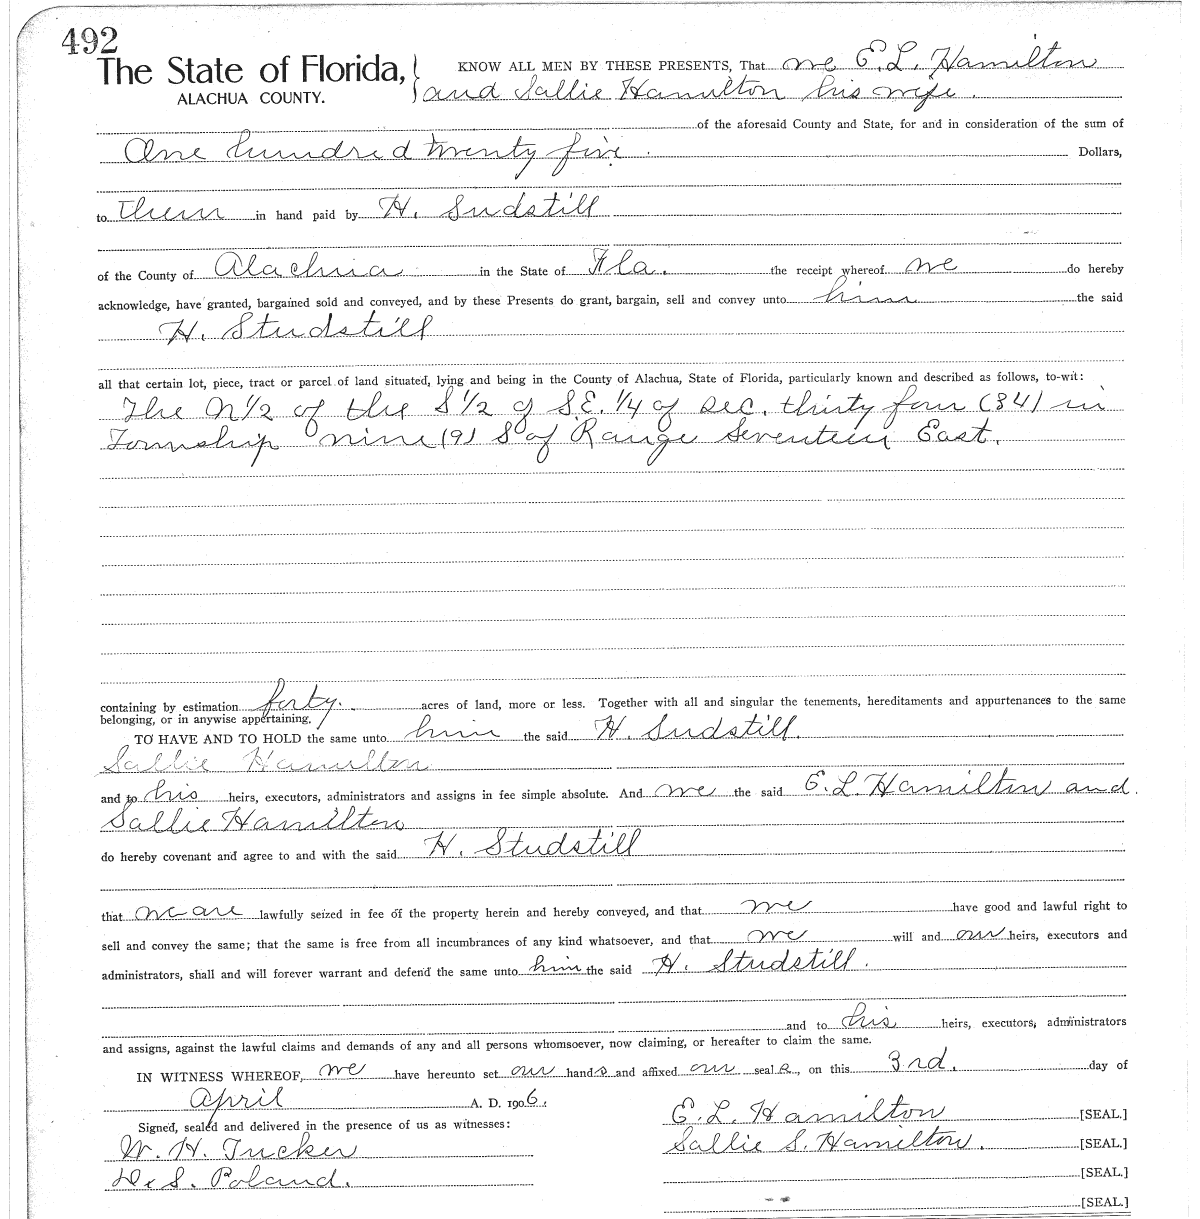 492
The State of Florida, KNOW ALL MEN BY THESE PRESENTS, That we E. L. Hamilton
ALACHUA COUNTY. and Sallie Hamilton his wife.
of the aforesaid County and State, for and in consideration of the sum of
One hundred twenty five Dollars,
to them in hand paid by H. Sudstill
of the County of Alachua in the State of Fla. the receipt whereof we do hereby
acknowledge, have granted, bargained sold and conveyed, and by these Presents do grant, bargain, sell and convey unto him the said
H. Studstill
all that certain lot, piece, tract or parcel of land situated, lying and being in the County of Alachua, State of Florida, particularly known and described as follows, to-wit:
The N 1/2 of the S 1/2 of S.E. 1/4 of Sec. thirty four (34) in
Township nine (9) S of Range Seventeen East.
containing by estimation forty. acres of land, more or less. Together with all and singular the tenements, hereditaments and appurtenances to the same
belonging, or in anywise appertaining.
TO HAVE AND TO HOLD the same unto him the said H. Sudstill.
Sallie Hamilton
and to his heirs, executors, administrators and assigns in fee simple absolute. And we the said E. L. Hamilton and
Sallie Hamilton
do hereby covenant and agree to and with the said H. Studstill
that we are lawfully seized in fee of the property herein and hereby conveyed, and that we have good and lawful right to
sell and convey the same; that the same is free from all incumbrances of any kind whatsoever, and that we will and our heirs, executors and
administrators, shall and will forever warrant and defend the same unto him the said H. Studstill.
and to his heirs, executors, administrators
and assigns, against the lawful claims and demands of any and all persons whomsoever, now claiming, or hereafter to claim the same.
IN WITNESS WHEREOF, we have hereunto set our hands and affixed our seals, on this 3rd. day of
April A. D. 1906.
E. L. Hamilton [SEAL.]
Signed, sealed and delivered in the presence of us as witnesses:
W. H. Tucker
Sallie S. Hamilton. [SEAL.]
S. Poland. [SEAL.]
[SEAL.]